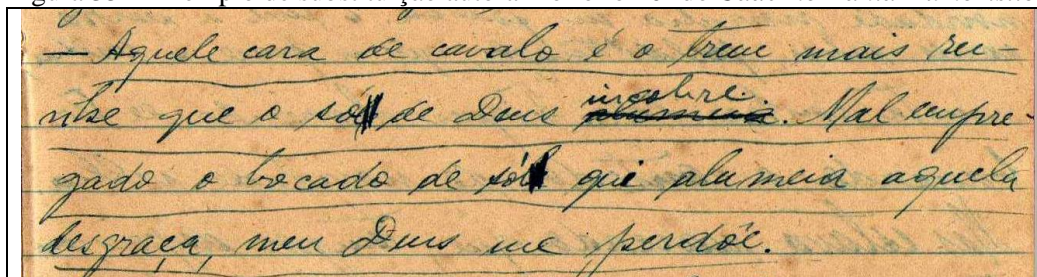 — Aquele cara de cavalo é o trem mais
que o só de Deus incobre. Mal empre-
gado o bocado de só que alumeia aquela
desgraça, meu Deus me perdôe.